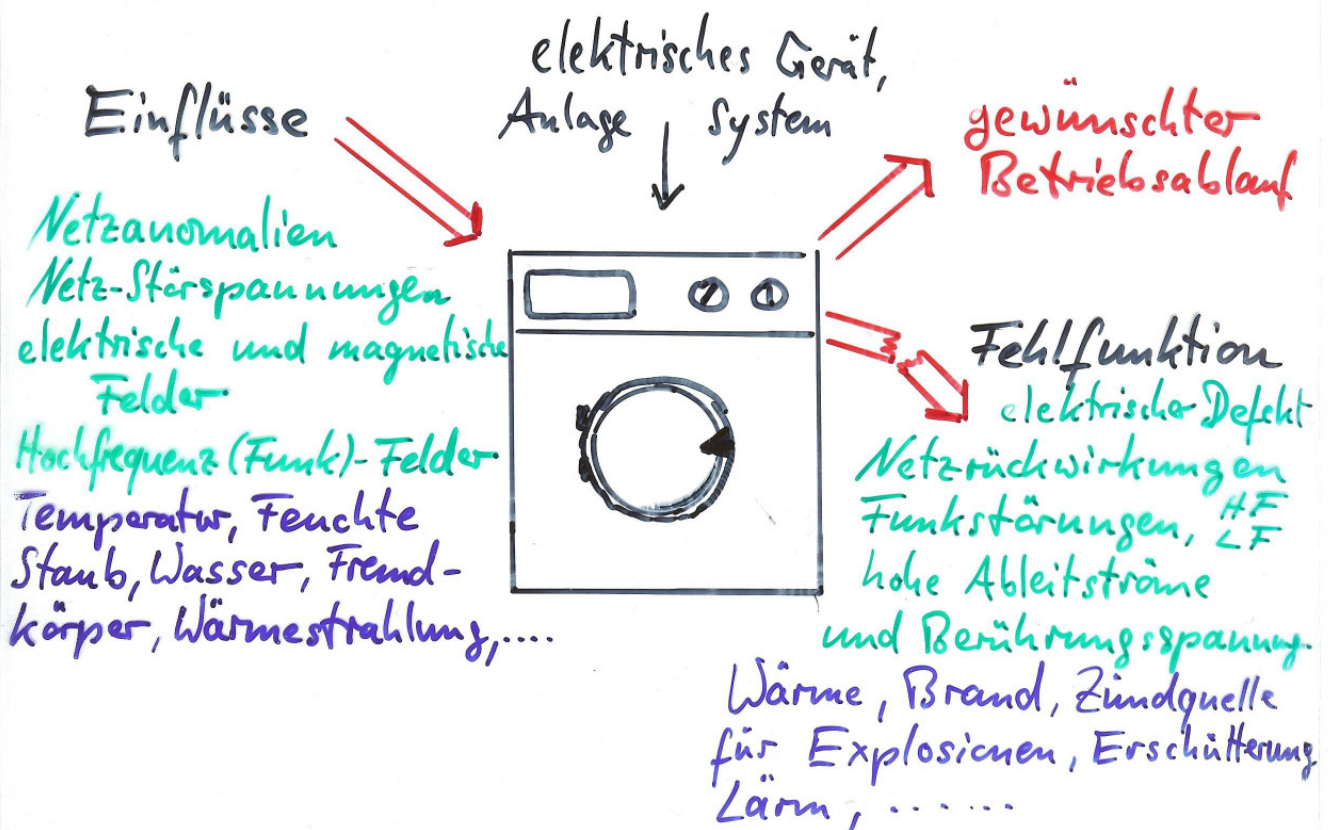 elektrisches Gerät,
Anlage System
Einflüsse
Netzanomalien
Netz-Störspannungen
elektrische und magnetische
Felder
Hochfrequenz (Funk)-Felder
Temperatur, Feuchte
Staub, Wasser, Fremd-
körper, Wärmestrahlung,....
gewünschter
Betriebsablauf
Fehlfunktion
elektrischer Defekt
Netzrückwirkungen
Funkstörungen, HF
LF
hohe Ableitströme
und Berührungsspannung
Wärme, Brand, Zündquelle
für Explosionen, Erschütterung
Lärm, ......